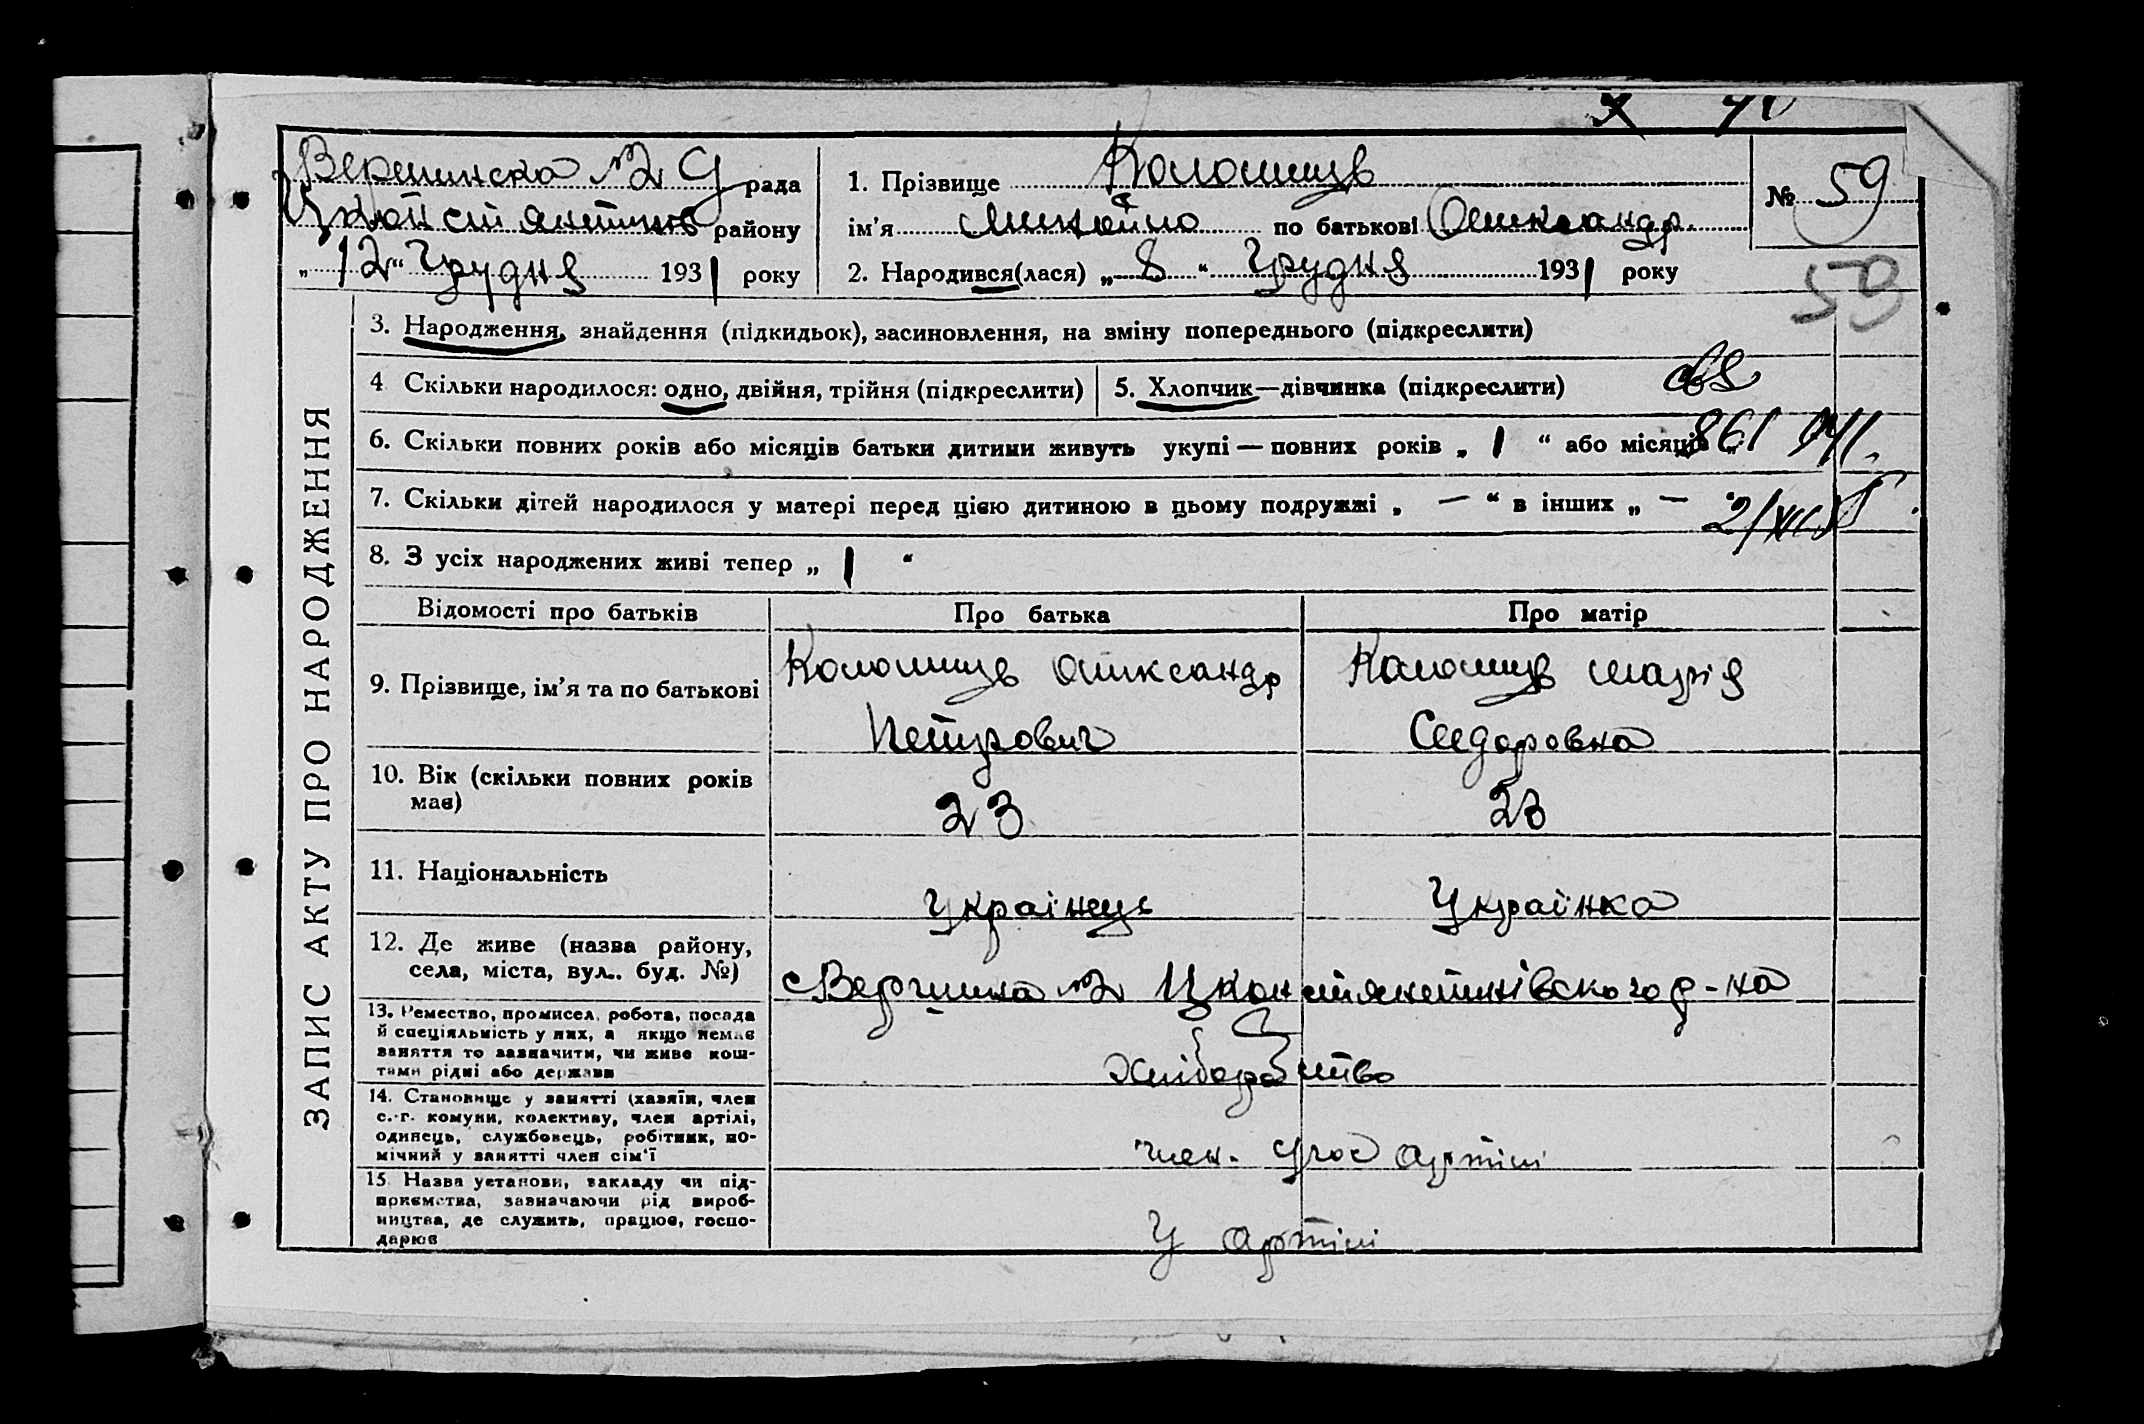 Вершинска №2 С/рада
Цконстянтинів району
„12“ Грудня 1931 року
1. Прізвище Коломиць
ім’я Михайло по батькові Олександр.
2. Народився(лася) „8“ Грудня 1931 року
№ 59
59
3. Народження, знайдення (підкидьок), засиновлення, на зміну попереднього (підкреслити)
4 Скільки народилося: одно, двійня, трійня (підкреслити)
5. Хлопчик—дівчинка (підкреслити)
6. Скільки повних років або місяців батьки дитини живуть укупі — повних років „ 1 “ або місяців
7. Скільки дітей народилося у матері перед цією дитиною в цьому подружжі „ — “ в інших „ — “
8. З усіх народжених живі тепер „ 1 “
ЗАПИС АКТУ ПРО НАРОДЖЕННЯ
Відомості про батьків Про батька Про матір
9. Прізвище, ім’я та по батькові
Коломиць Олександр
Петрович
Коломиць Марія
Сидоровна
10. Вік (скільки повних років
має)
23
23
11. Національність
Українець
Українка
12. Де живе (назва району,
села, міста, вул.. буд. №)
с Вершина №2 Цконстянтинівского р-на
13. Ремество, промисел, робота, посада
й спеціяльність у них, а якщо немає
заняття то зазначити, чи живе кош-
тами рідні або держави
Хліборобство
14. Становище у занятті (хазяїн, член
с.-г. комуни, колективу, член артілі,
одинець, службовець, робітник, по-
мічний у занятті член сім’ї
член. артілі
15. Назва установи, закладу чи під-
приємства, зазначаючи рід вироб-
ництва, де служить, працює, госпо-
дарює
У артілі